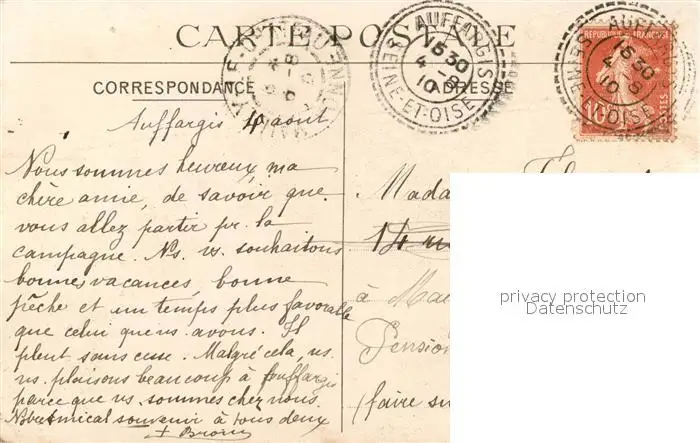 CARTE POSTALE
CORRESPONDANCE
ADRESSE
AUFFARGIS
15 30
4 - 8
10
SEINE-ET-OISE
AUFFARGIS
15 30
4 - 8
10
SEINE-ET-OISE
REPUBLIQUE FRANÇAISE
10
POSTES
Auffargis 4 août
Nous sommes heureux, ma
chère amie, de savoir que
vous allez partir pr. la
campagne. Ns. vs. souhaitons
bonnes vacances, bonne
pêche et un temps plus favorable
que celui que ns. avons. Il
pleut sans cesse. Malgré cela, ns.
ns. plaisons beaucoup à Auffargis
parce que ns. sommes chez nous.
amical souvenir à tous deux
Mada
14
à
Pension
(faire su
privacy protection
Datenschutz